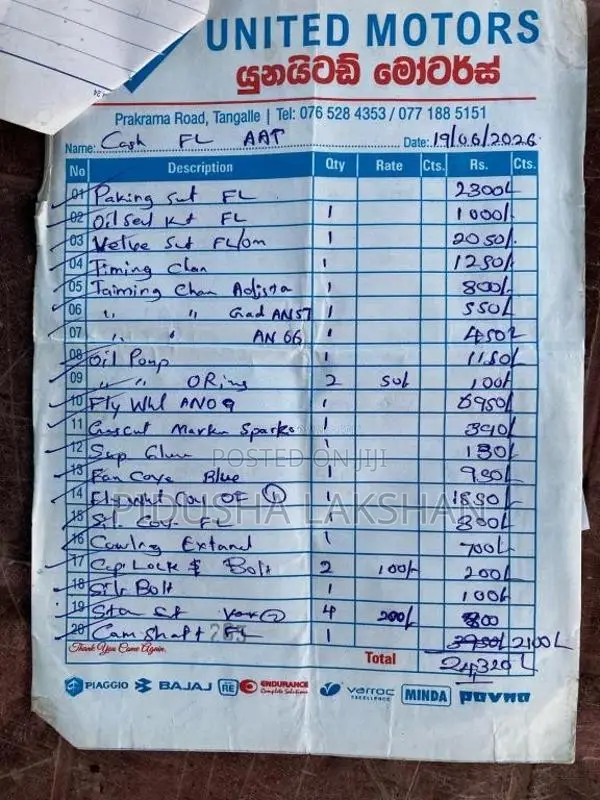 UNITED MOTORS
යුනයිටඩ් මෝටර්ස්
Prakrama Road, Tangalle | Tel: 076 528 4353 / 077 188 5151
Name: Cash FL AAT Date: 19/06/2026
No Description Qty Rate Cts. Rs. Cts.
01 Paking Sut FL 2300/-
02 Oil Seal Kit FL 1 1000/-
03 Velve Sut FL/om 1 2050/-
04 Timing Chan 1 1250/-
05 Taiming Chan Adjista 1 800/-
06 " " Gad AN57 1 550/-
07 " " AN 66 1 450/-
08 Oil Pomp 1 1150/-
09 " " O Ring 2 50/- 100/-
10 Fly Whl AN09 1 6950/-
11 Gascut Markn Sparko 1 390/-
12 Sup Glum 1 130/-
13 Fan Cove Blue 1 950/-
14 Fly whl Cov OF 1 1 1850/-
15 Sil Cov FL 1 300/-
16 Cowling Extand 700/-
17 Cap Lock $ Bolt 2 100/- 200/-
18 Silr Bolt 1 100/-
19 Ston St 4 200/- 800
20 Cam Shaft 1 3950/- 2100/-
Thank You Come Again.
Total 24,320/-
PIAGGIO BAJAJ RE ENDURANCE Complete Solutions varroc EXCELLENCE MINDA pavna
POSTED ON JIJI
PIDUSHA LAKSHAN